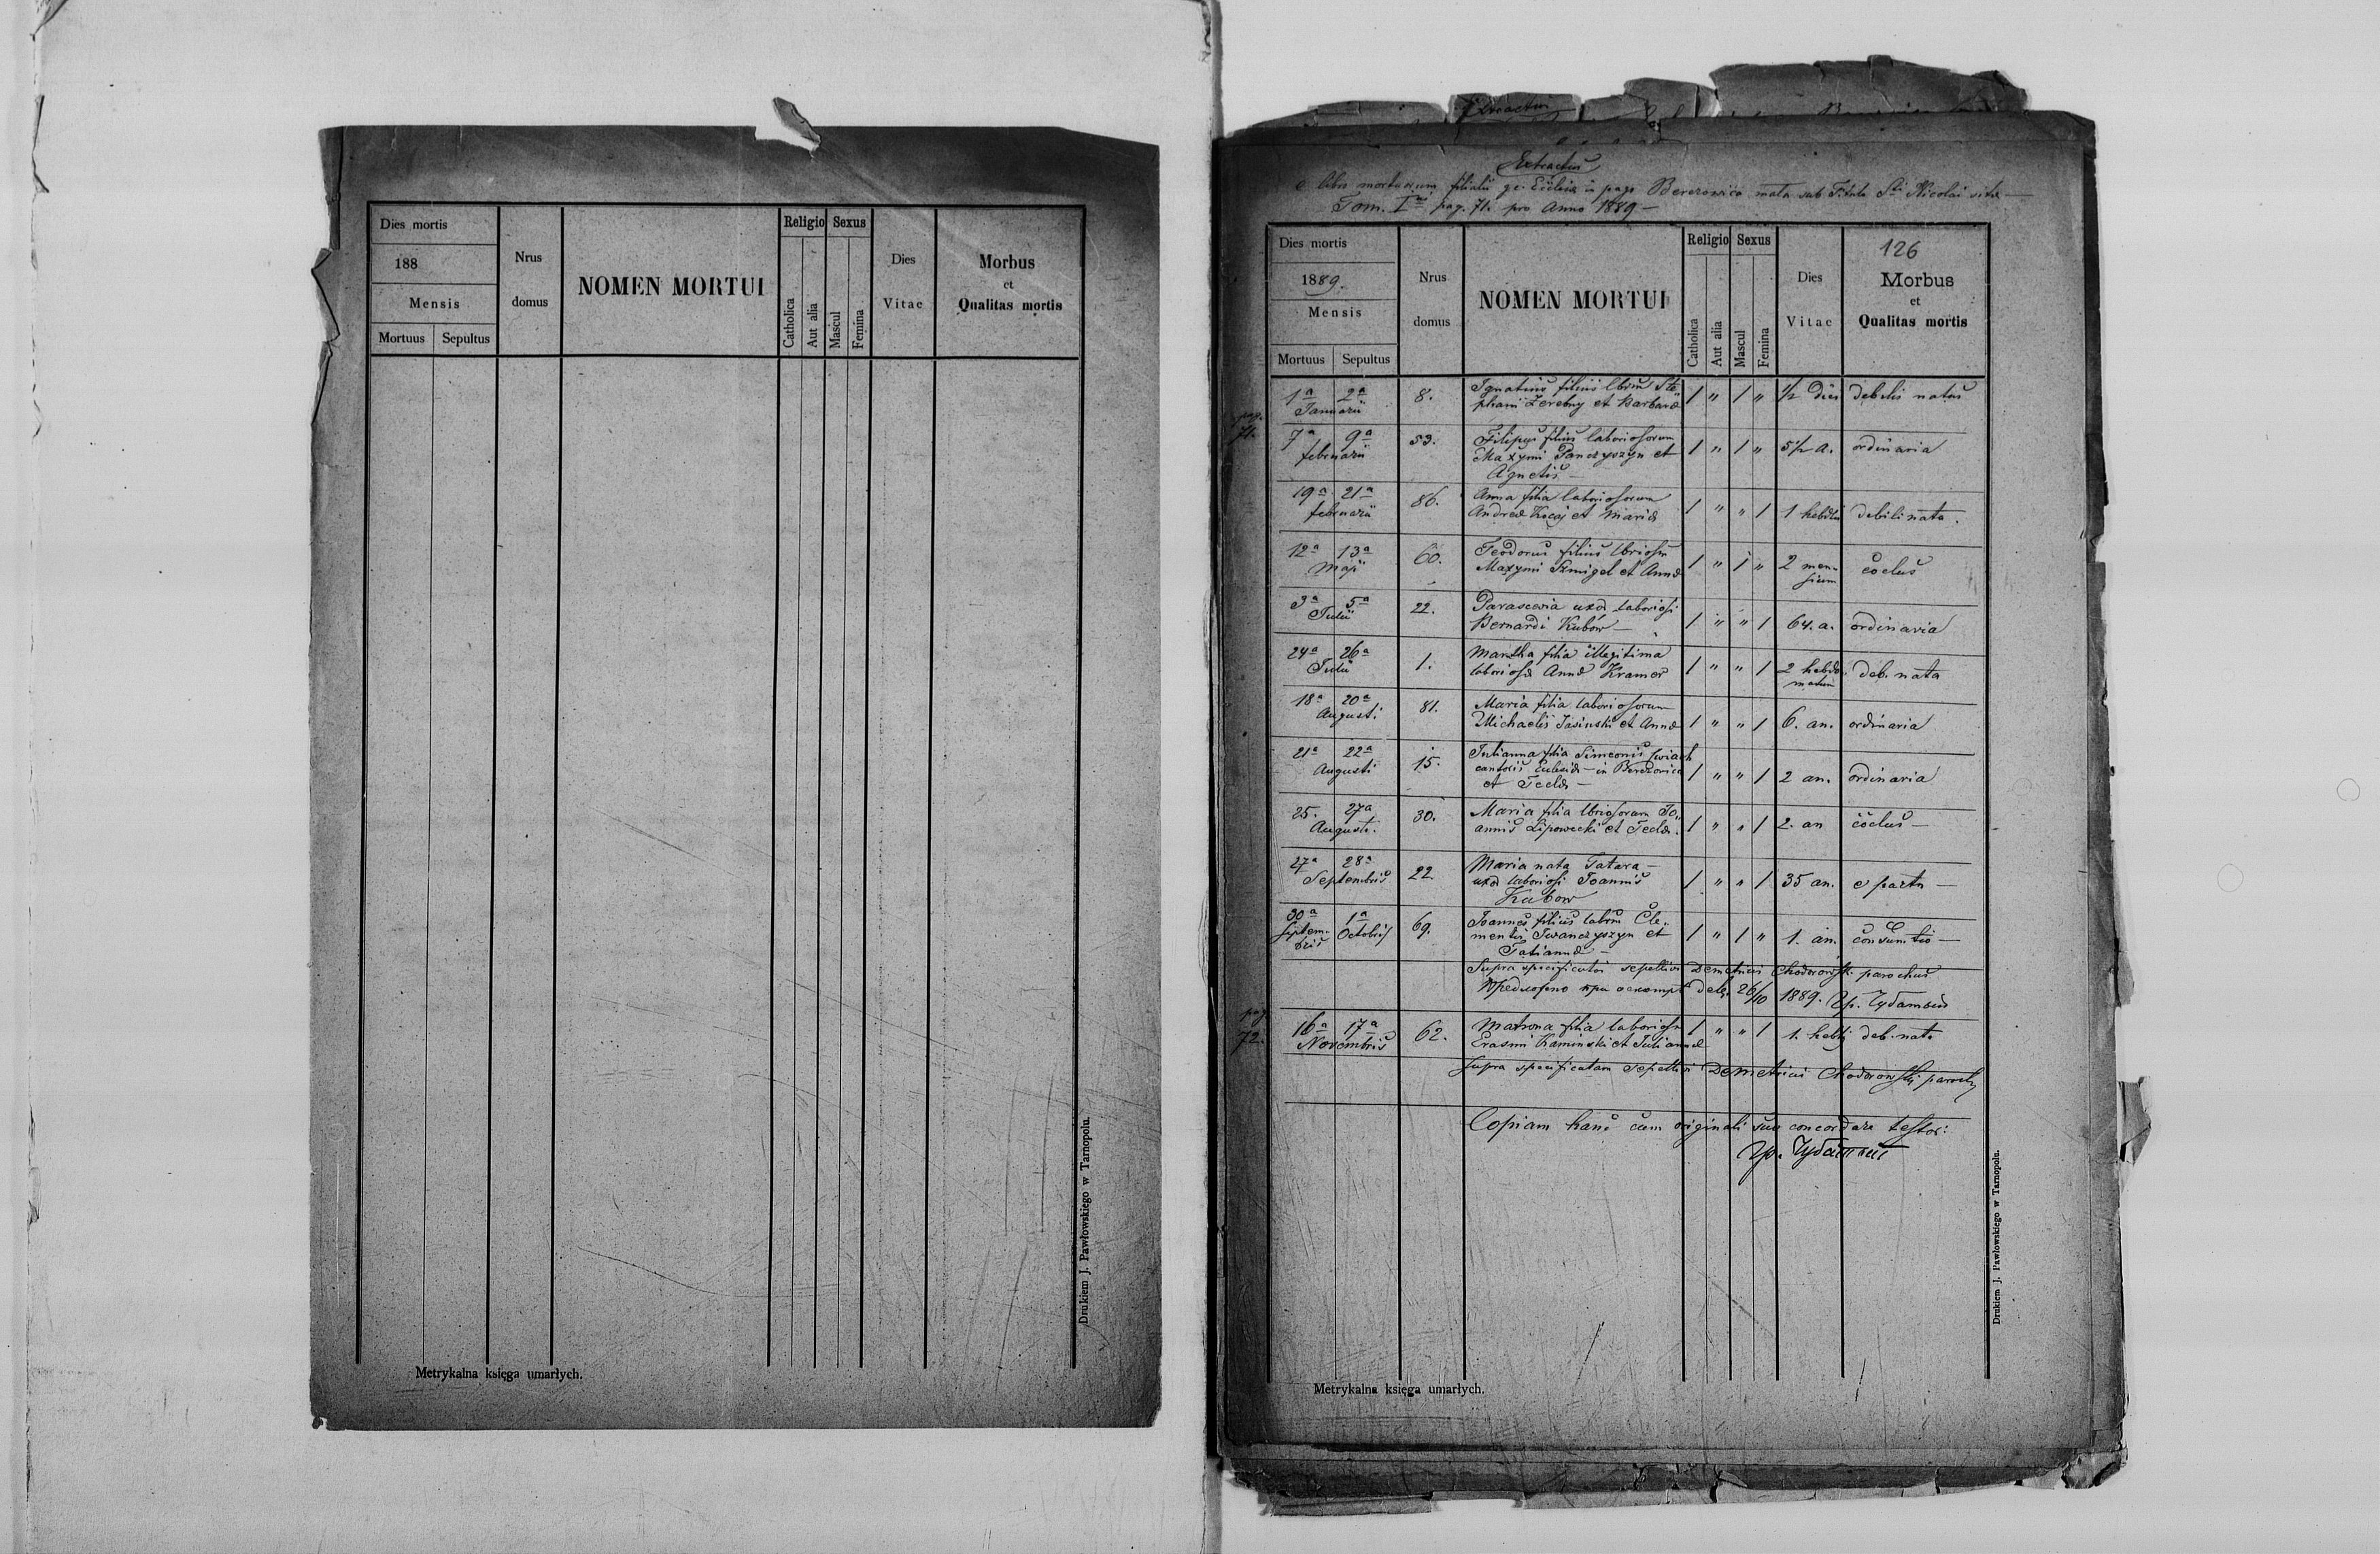 Dies mortis
188
Mensis
Mortuus Sepultus
Nrus
domus
NOMEN MORTUI
Religio Sexus
Catholica
Aut alia
Mascul
Femina
Dies
Vitae
Morbus
et
Qualitas mortis
Metrykalna księga umarłych.
Drukiem J. Pawłowskiego w Tarnopolu.
Extractus
e libro mortuorum filialis gr. Ecclesiae in pago Berezowica mała sub Titulo Sti Nicolai
Tom. I pag. 71. pro Anno 1889 —
Dies mortis
1889.
Mensis
Mortuus Sepultus
Nrus
domus
NOMEN MORTUI
Religio Sexus
Catholica
Aut alia
Mascul
Femina
Dies
Vitae
126
Morbus
et
Qualitas mortis
pag. 71.
1a 2a 8. Ignatius filius lbrm Ste
Januarii phani Zerebny et Barbarae 1 " 1 " 1/2 dies debilis natus
7a 9a 53. Filipus filius laboriosorum
februarii Maxymi Panczyszyn et 1 " 1 " 5 1/2 a. ordinaria
Agnetis —
19a 21a 86. Anna filia laboriosorum
februarii Andreae Kocaj et Mariae 1 " " 1 1 debili nata.
12a 13a 60. Teodorus filius
Maji Maxymi Szmigel et Annae 1 " 1 " 2 men-
sium coclus
3a 5a 22. Parascevia uxor laboriosi
Julii Bernardi Kubów — 1 " " 1 64. a. ordinaria
24a 26a 1. Martha filia illegitima
Julii laboriosae Annae Kramer 1 " " 1 2 hebdo
matum deb. nata
18a 20a 81. Maria filia laboriosorum
Augusti Michaelis Jasinski et Annae 1 " " 1 6. an. ordinaria
21a 22a 15. Julianna filia Simeonis
Augusti cantoris Eclesiae — in Berezovica 1 " " 1 2 an. ordinaria
et Teclae —
25. 27a 30. Maria filia lbriosorum Jo„
Augusti. annis Lipowecki et Teclae. 1 " " 1 2. an coclus —
27a 28a 22. Maria nata Tatara —
Septembris uxor laboriosi Joannis 1 " " 1 35 an. e partu —
Kubow
30a 1a 69. Joannes filius labrm Cle„
Septem- Octobris mentis Iwanczyszyn et 1 " 1 " 1. an. consumtio —
bris Tatiannae —
Supra specificatos sepelivi Demetrius Chodorowski parochus
Предложено при 26/10 1889. Гр. Чубатый
pag. 72.
16a 17a 62. Matrona filia laborios 1 " " 1 1. hebd deb. nata
Novembris Erasmi Kaminski et Juliannae
Supra specificatam sepelivi Demetrius Chodorowski paroch
Copiam hanc cum originali suo concordare testor:
Гр. Чубатый
Metrykalna księga umarłych.
Drukiem J. Pawłowskiego w Tarnopolu.